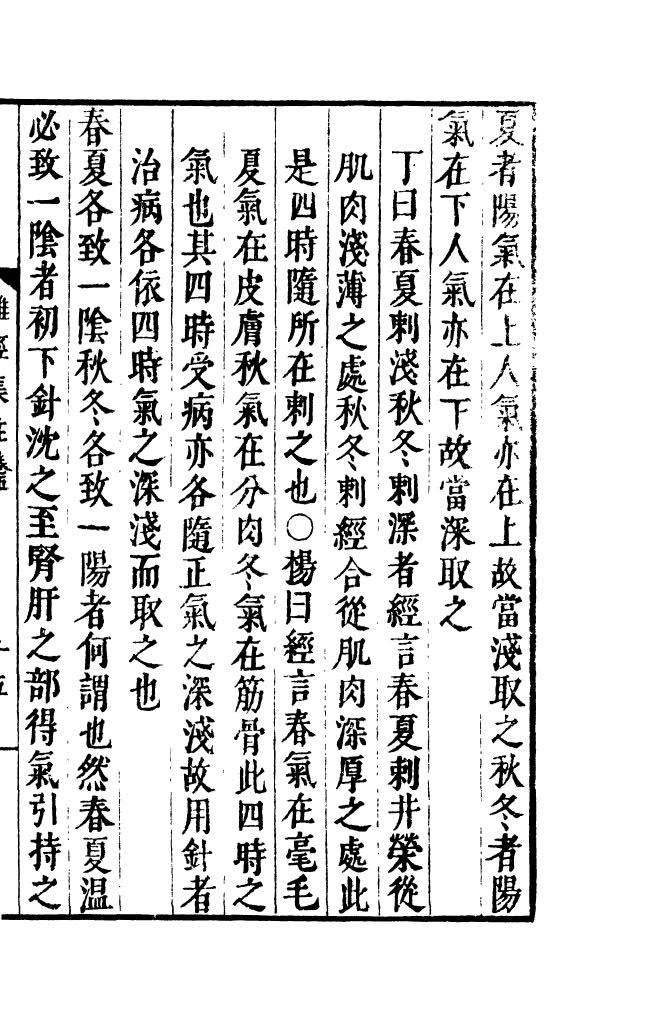 夏者陽氣在上人氣亦在上故當淺取之秋冬者陽
氣在下人氣亦在下故當深取之
丁曰春夏刺淺秋冬刺深者經言春夏刺井滎從
肌肉淺薄之處秋冬刺經合從肌肉深厚之處此
是四時隨所在刺之也○楊曰經言春氣在毫毛
夏氣在皮膚秋氣在分肉冬氣在筋骨此四時之
氣也其四時受病亦各隨正氣之深淺故用針者
治病各依四時氣之深淺而取之也
春夏各致一陰秋冬各致一陽者何謂也然春夏温
必致一陰者初下針沈之至腎肝之部得氣引持之
難經集註卷 十五